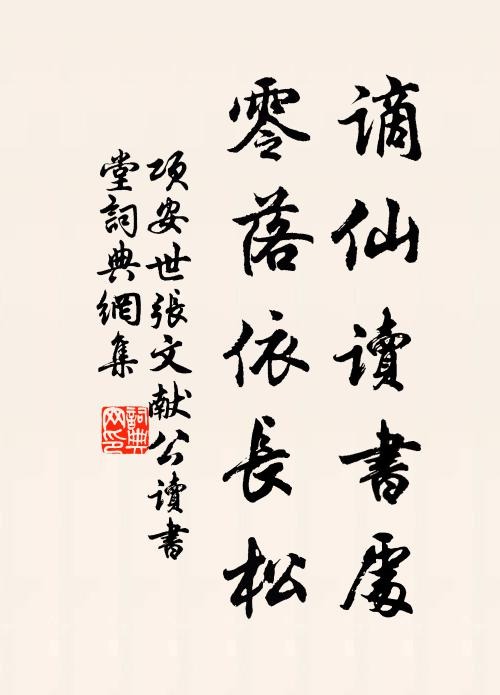 謫仙讀書處
零落依長松
項安世張文献公讀書
堂詞典網集
詞典
网印